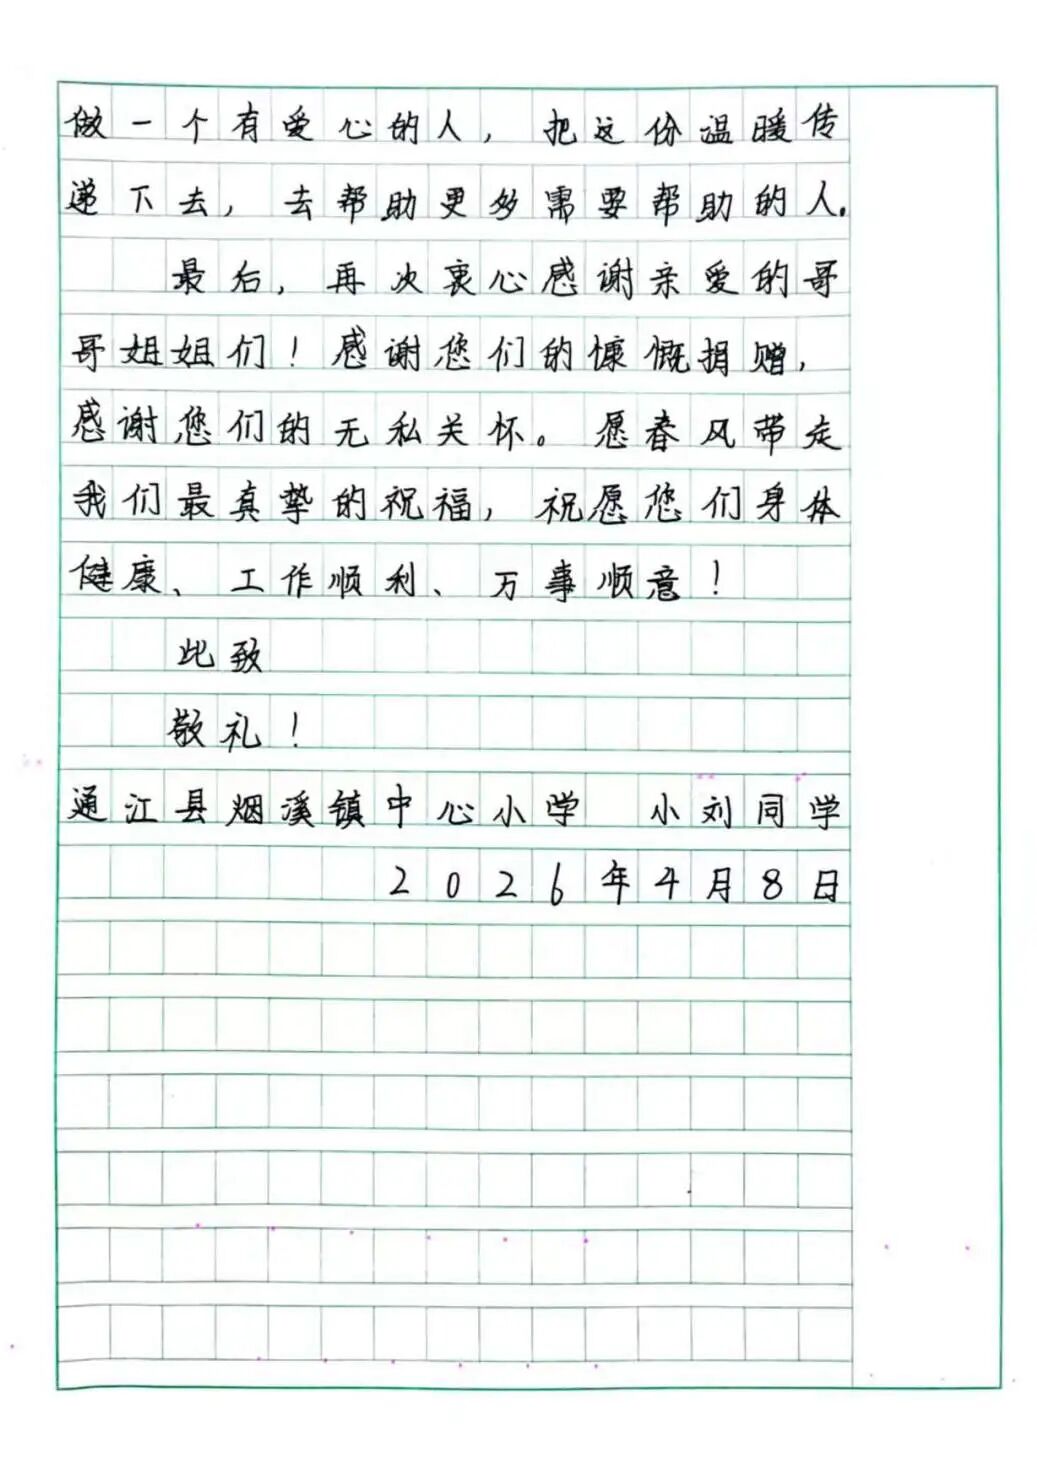 做一个有爱心的人，把这份温暖传
递下去，去帮助更多需要帮助的人.
最后，再次衷心感谢亲爱的哥
哥姐姐们！感谢您们的慷慨捐赠，
感谢您们的无私关怀。愿春风带走
我们最真挚的祝福，祝愿您们身体
健康、工作顺利、万事顺意！
此致
敬礼！
通江县烟溪镇中心小学 小刘同学
2026年4月8日